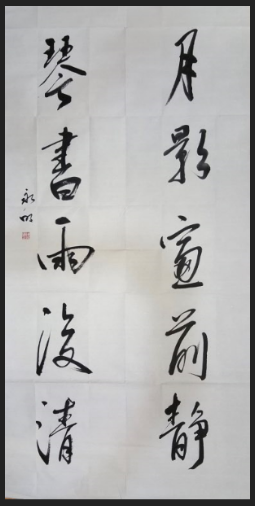 月影窗前静
琴書雨後清
永明